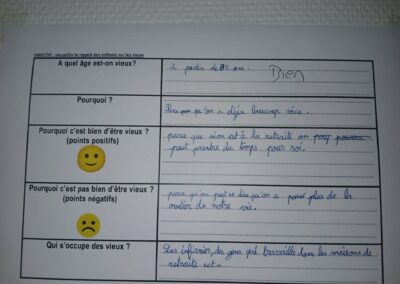 OBJECTIF : recueillir le regard des enfants sur les vieux
A quel âge est-on vieux?
à partir de 85 ans.
Bien
Pourquoi ?
Parce qu'on a déja beaucoup vécu.
Pourquoi c'est bien d'être vieux ?
(points positifs)
parce que si on est à la retraite on
peut prendre du temps pour soi.
Pourquoi c'est pas bien d'être vieux ?
(points négatifs)
parce qu'on peut se dire qu'on a passé plus de la
moitier de notre vie.
Qui s'occupe des vieux ?
Les infirmier, des gens qui travaille dans les maisons de
retraite ect..